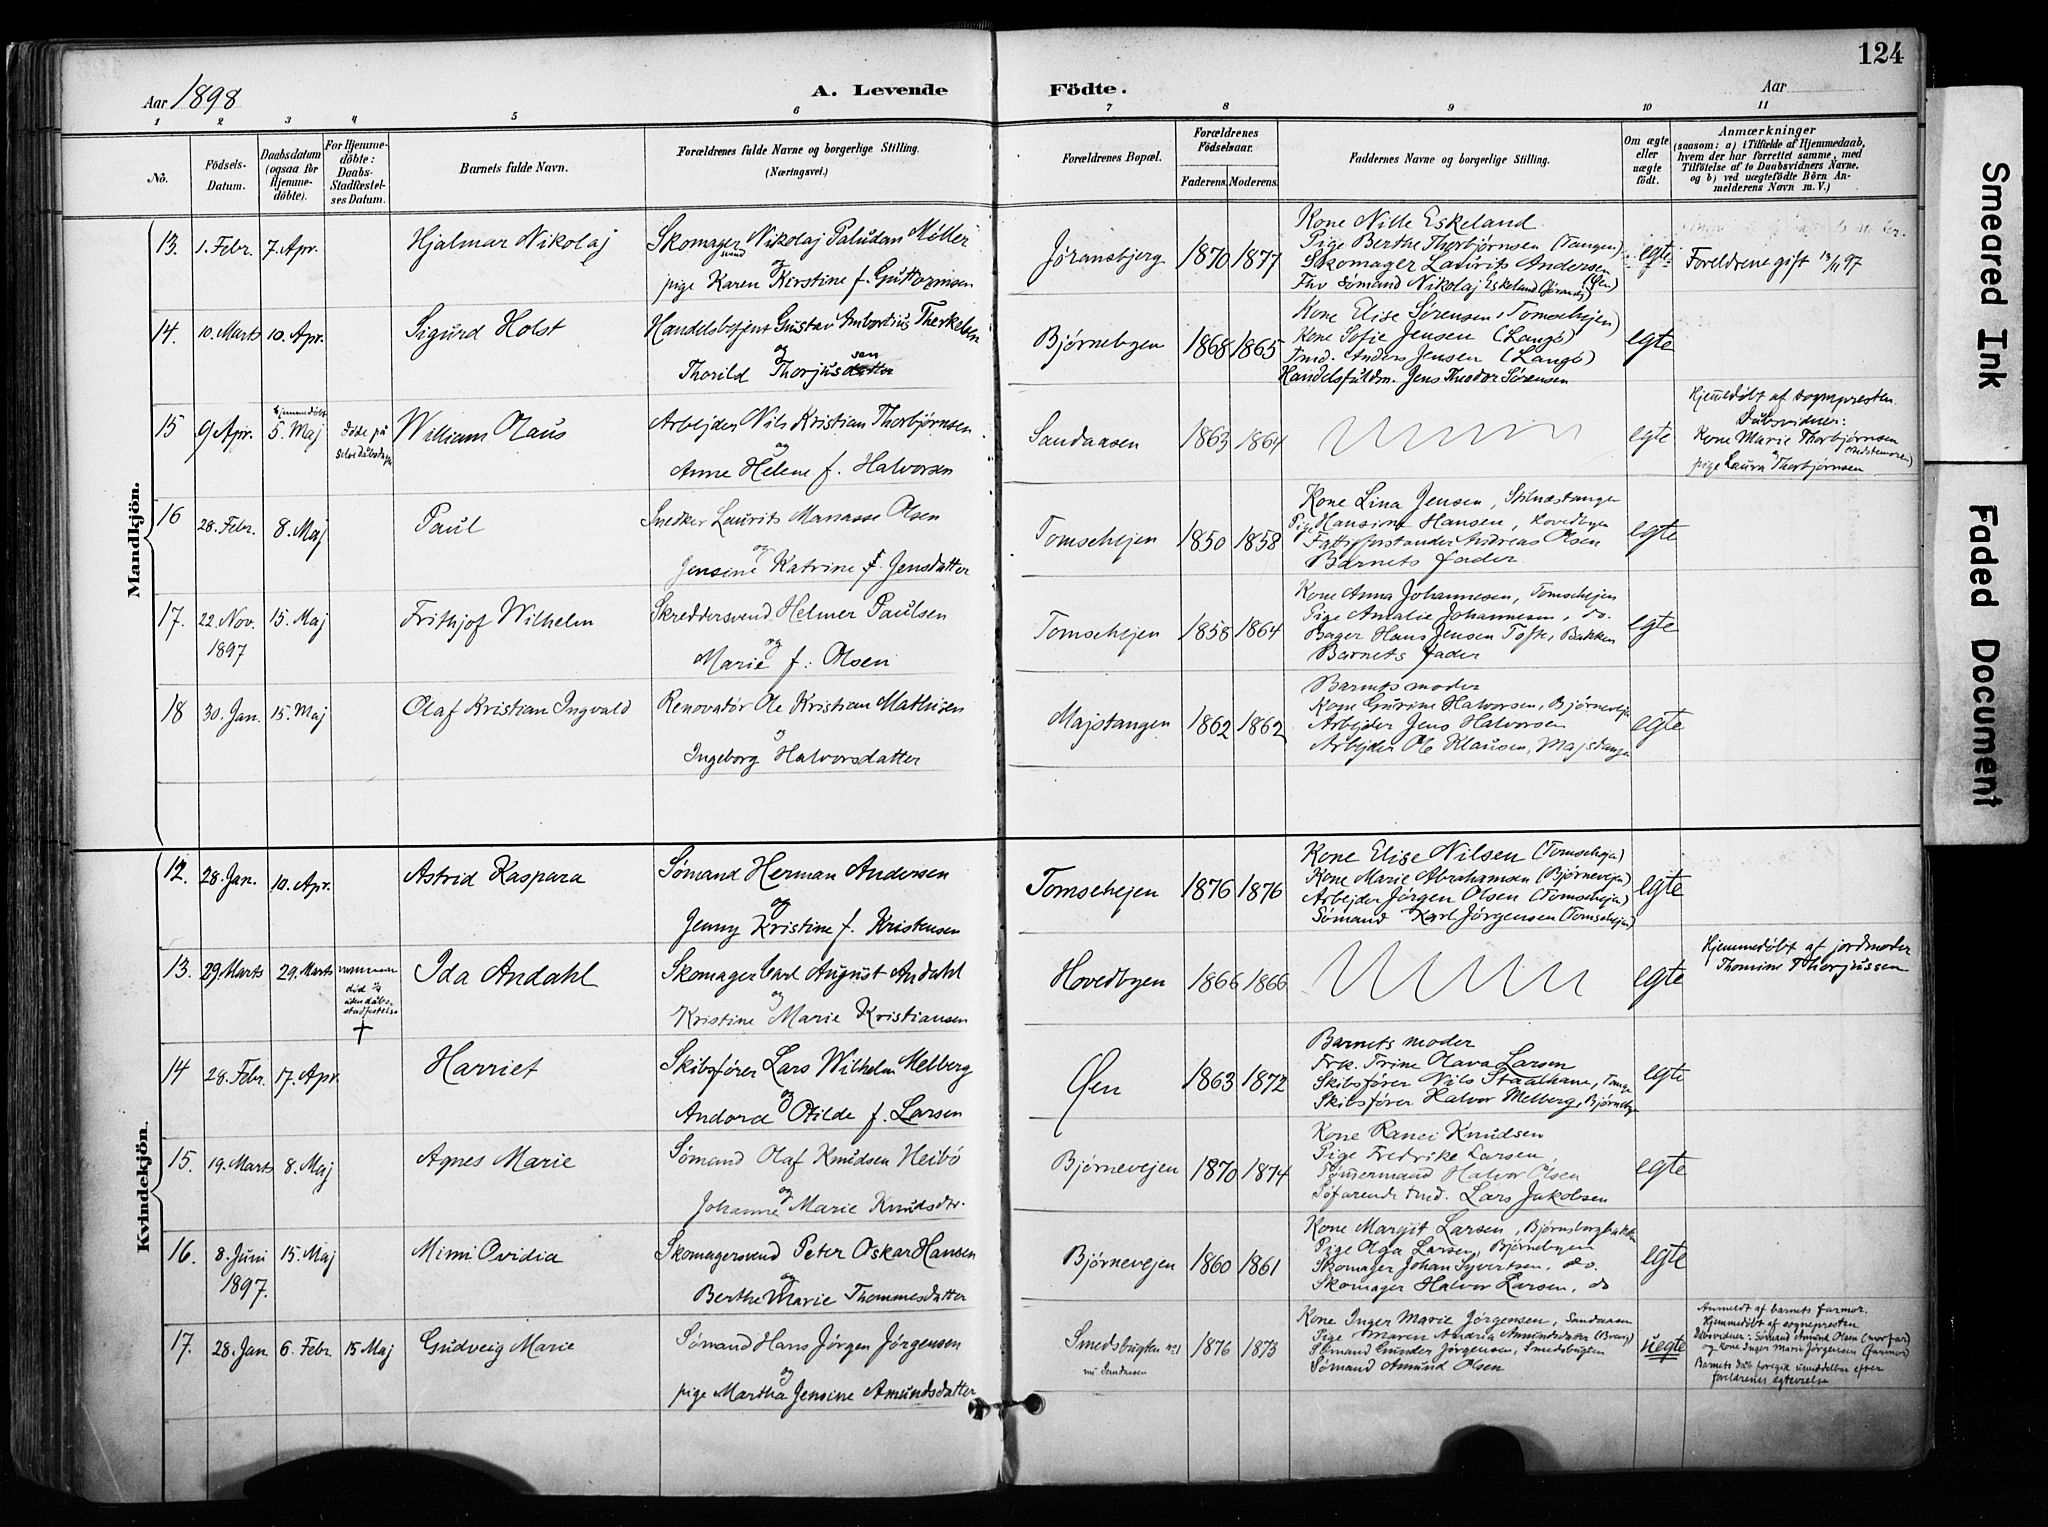 124
Aar 1898
A. Levende Födte.
Aar
1 2 3 4 5 6 7 8 9 10 11
No.
Födsels-Datum.
Daabsdatum (ogsaa for Hjemmedöbte).
For Hjemmedöbte: Daabs-Stadfæstelses Datum.
Barnets fulde Navn.
Forældrenes fulde Navne og borgerlige Stilling.
(Næringsvei.)
Forældrenes Bopæl.
Forældrenes Födselsaar.
Faderens. Moderens.
Faddernes Navne og borgerlige Stilling.
Om ægte eller uægte födt.
Anmærkninger
(saasom: a) i Tilfælde af Hjemmedaab, hvem der har forrettet samme, med Tilföielse af to Daabsvidners Navne. og b) ved uægtefödte Börn Anmelderens Navn m. V.)
Mandkjön.
13. 1. Febr. 7. Apr. Hjalmar Nikolaj
Skomagersvend Nikolaj Paludan Möller
og
pige Karen Kirstine f. Guttormsen
Jøransbjerg 1870 1877
Kone Nille Eskeland
Pige Berthe Thorbjørnsen (Tangen)
Skomager Laurits Andersen (Øen)
Fhv Sømand Nikolaj Eskeland
egte
Foreldrene gift 13/11 97
14. 10. Marts 10. Apr. Sigurd Holst
Handelsbetjent Gustav Ambortius Therkelsen
og
Thorild Thorjussen
Bjørnebyen 1868 1865
Kone Elise Sørensen, Tomsehejen)
Kone Sofie Jensen (Langö)
Tmd. Anders Jensen (Langö)
Handelsfuldm. Jens Theodor Sörensen
egte
15 9 Apr. hjemmedöbt 5. Maj döde på selve dåbsdagen William Olaus
Arbejder Nils Kristian Thorbjørnsen
og
Anne Helene f. Halvorsen
Sandaasen 1863 1864
egte
Hjemedöbt af sognepresten
Dåbsvidner:
Kone Marie Thorbjørnsen
(bedstemoren)
pige Laura Thorbjørnsen
16 28. Febr. 8. Maj Paul
Snedker Laurits Manasse Olsen
og
Jensine Katrine f. Jensdatter
Tomsehejen 1850 1858
Kone Lina Jensen, Stilnæstangen
Pige Hansine Hansen, Hovedbyen
Fattigforstander Andreas Olsen
Barnets fader
egte
17. 22. Nov. 1897 15. Maj Frithjof Wilhelm
Skreddersvend Helmer Paulsen
og
Marie f. Olsen
Tomsehejen 1858 1864
Kone Anna Johannesen, Tomsehejen
Pige Amalie Johannesen, do.
Bager Hans Jensen Toft, Bakken
Barnets fader
egte
18 30. Jan. 15. Maj Olaf Kristian Ingvald
Renovatör Ole Kristian Mathisen
og
Ingeborg Halvorsdatter
Majstangen 1862 1862
Barnets moder
Kone Gurine Halvorsen, Bjørnevejen
Arbejder Jens Halvorsen
Arbejder Ole Klausen, Majstangen
egte
Kvindekjön.
12. 28. Jan. 10. Apr. Astrid Kaspara
Sømand Herman Andersen
og
Jenny Kristine f. Kristensen
Tomsehejen 1876 1876
Kone Elise Nilsen (Tomsehejen)
Kone Marie Abrahamsen (Bjørnevejen)
Arbejder Jørgen Olsen (Tomsehejen)
Sømand Karl Jørgensen (Tomsehejen)
egte
13. 29. Marts 29. Marts Ida Andahl
Skomager Carl August Andahl
og
Kristine Marie Kristiansen
Hovedbyen 1866 1866
egte
Hjemmedöbt af jordmoder
Thomine Thorjussen
14 28. Febr. 17. Apr. Harriet
Skibsfører Lars Wilhelm Melberg
og
Andora Otilde f. Larsen
Øen 1863 1872
Barnets moder
Frk. Trine Olava Larsen
Skibsfører Nils Staalhane, Tangen
Skibsfører Halvor Melberg, Bjørnebyen
egte
15. 19. Marts 8. Maj Agnes Marie
Sømand Olaf Knudsen Heibö
og
Johanne Marie Knudsdtr.
Bjørnevejen 1870 1874
Kone Ranei Knudsen
Pige Fredrike Larsen
Tømmermand Halvor Olsen
Søfarende tmd. Lars Jakobsen
egte
16. 8. Juni 1897. 15. Maj Mimi Ovidia
Skomagersvend Peter Oskar Hansen
og
Berthe Marie Thommesdatter
Bjørnevejen 1860 1861
Kone Margit Larsen, Bjørnsborgbakken
Pige Olga Larsen, Bjørnebyen
Skomager Johan Syvertsen, do.
Skomager Halvor Larsen, do
egte
17. 28. Jan 6. Febr. 15 Maj Gudveig Marie
Sømand Hans Jørgen Jørgensen
og
pige Martha Jensine Amundsdatter
Smedsbugten
nu Sandaasen
1876 1873
Kone Inger Marie Jørgensen, Sandaasen
Pige Maren Andrea Amundsdatter
Sømand Gunder Jørgensen, Smedsbugten
Sømand Amund Olsen
uegte
Anmeldt af barnets farmor.
Hjemmedöbt af sognepresten
Dåbsvidner: Sømand Amund Olsen (morfar)
og kone Inger Marie Jørgensen (farmor)
Barnets dåb foregik umiddelbar efter
foreldrenes egtevielse
Smeared Ink
Faded Document